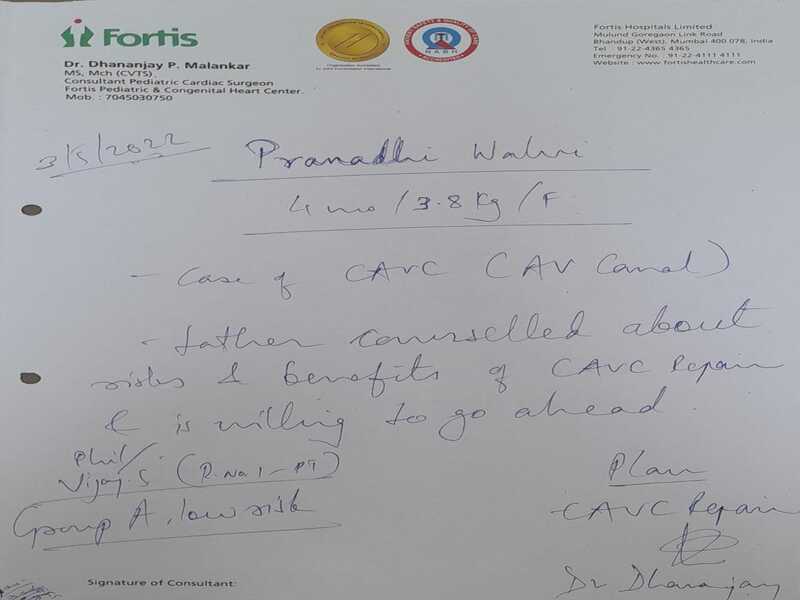 Fortis
Dr. Dhananjay P. Malankar
MS, Mch (CVTS).
Consultant Pediatric Cardiac Surgeon
Fortis Pediatric & Congenital Heart Center.
Mob. : 7045030750
NABH
ACCREDITED
Fortis Hospitals Limited
Mulund Goregaon Link Road
Bhandup (West), Mumbai 400 078, India
Tel : 91-22-4365 4365
Emergency No. : 91-22-4111 4111
Website : www.fortishealthcare.com
3/5/2022
Pranadhi
4 mo / 3.8 kg / F
- Case of CAVC (AV Canal)
- Father counselled about
risks & benefits of CAVC Repair
& is willing to go ahead.
Phil/
Vijay. S
Group A, low risk
Plan
- CAVC Repair
Dr Dhananjay
Signature of Consultant: